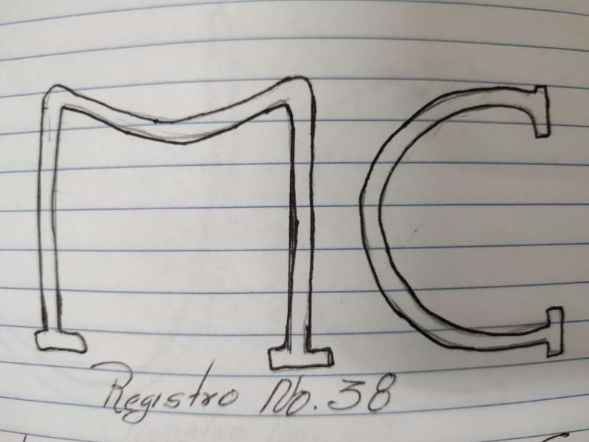 MC
Registro No. 38